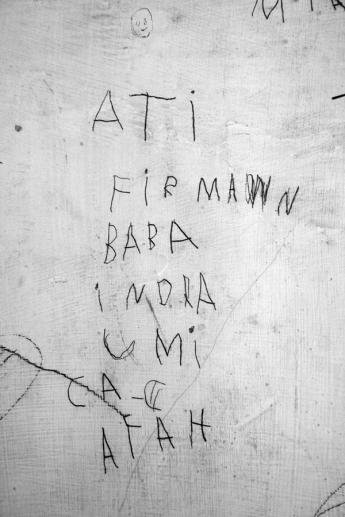 ATi
FiRMAN
BABA
iNDRA
UMi
CA-C
AFAH